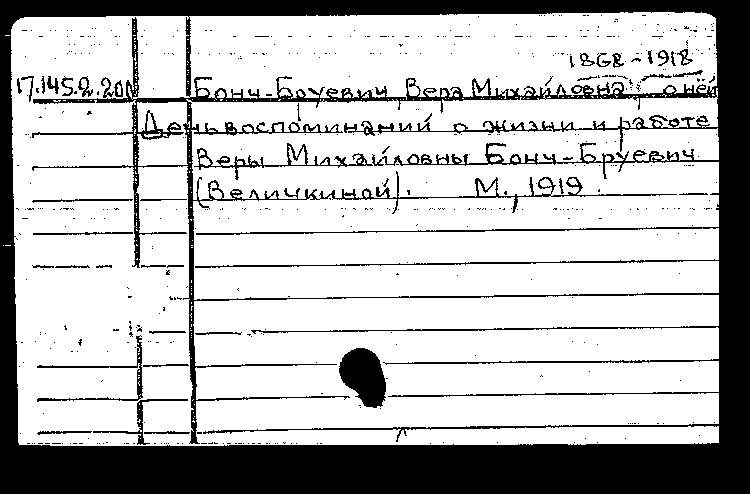 1868-1918
17.145.2.201 Бонч-Бруевич, Вера Михайловна, о ней
День воспоминаний о жизни и работе
Веры Михайловны Бонч-Бруевич
(Величкиной). М., 1919.